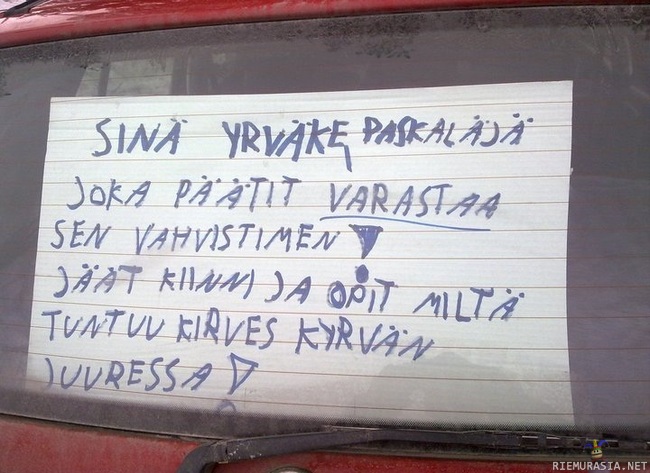 SINÄ YRVÄKE, PASKALÄJÄ
JOKA PÄÄTIT VARASTAA
SEN VAHVISTIMEN!
JÄÄT KIINNI JA OPIT MILTÄ
TUNTUU KIRVES KYRVÄN
JUURESSA!
RIEMURASIA.NET